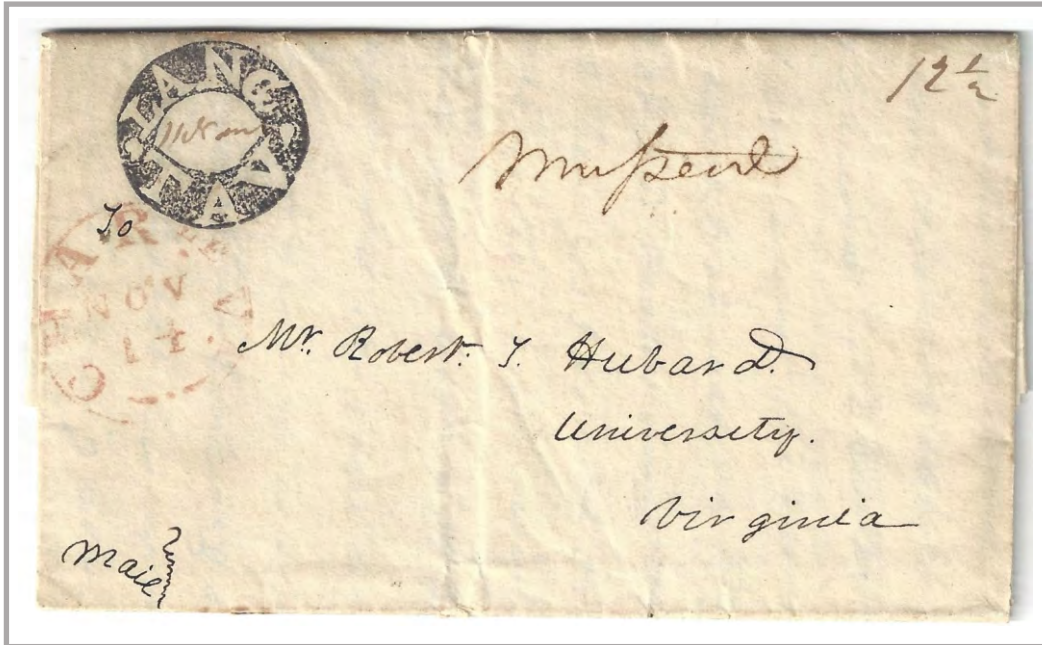 LANG C.
VA
12 ½
Missent
To
CHAR
NOV
14
Mr. Robert. T. Hubard.
University.
Virginia
Mail